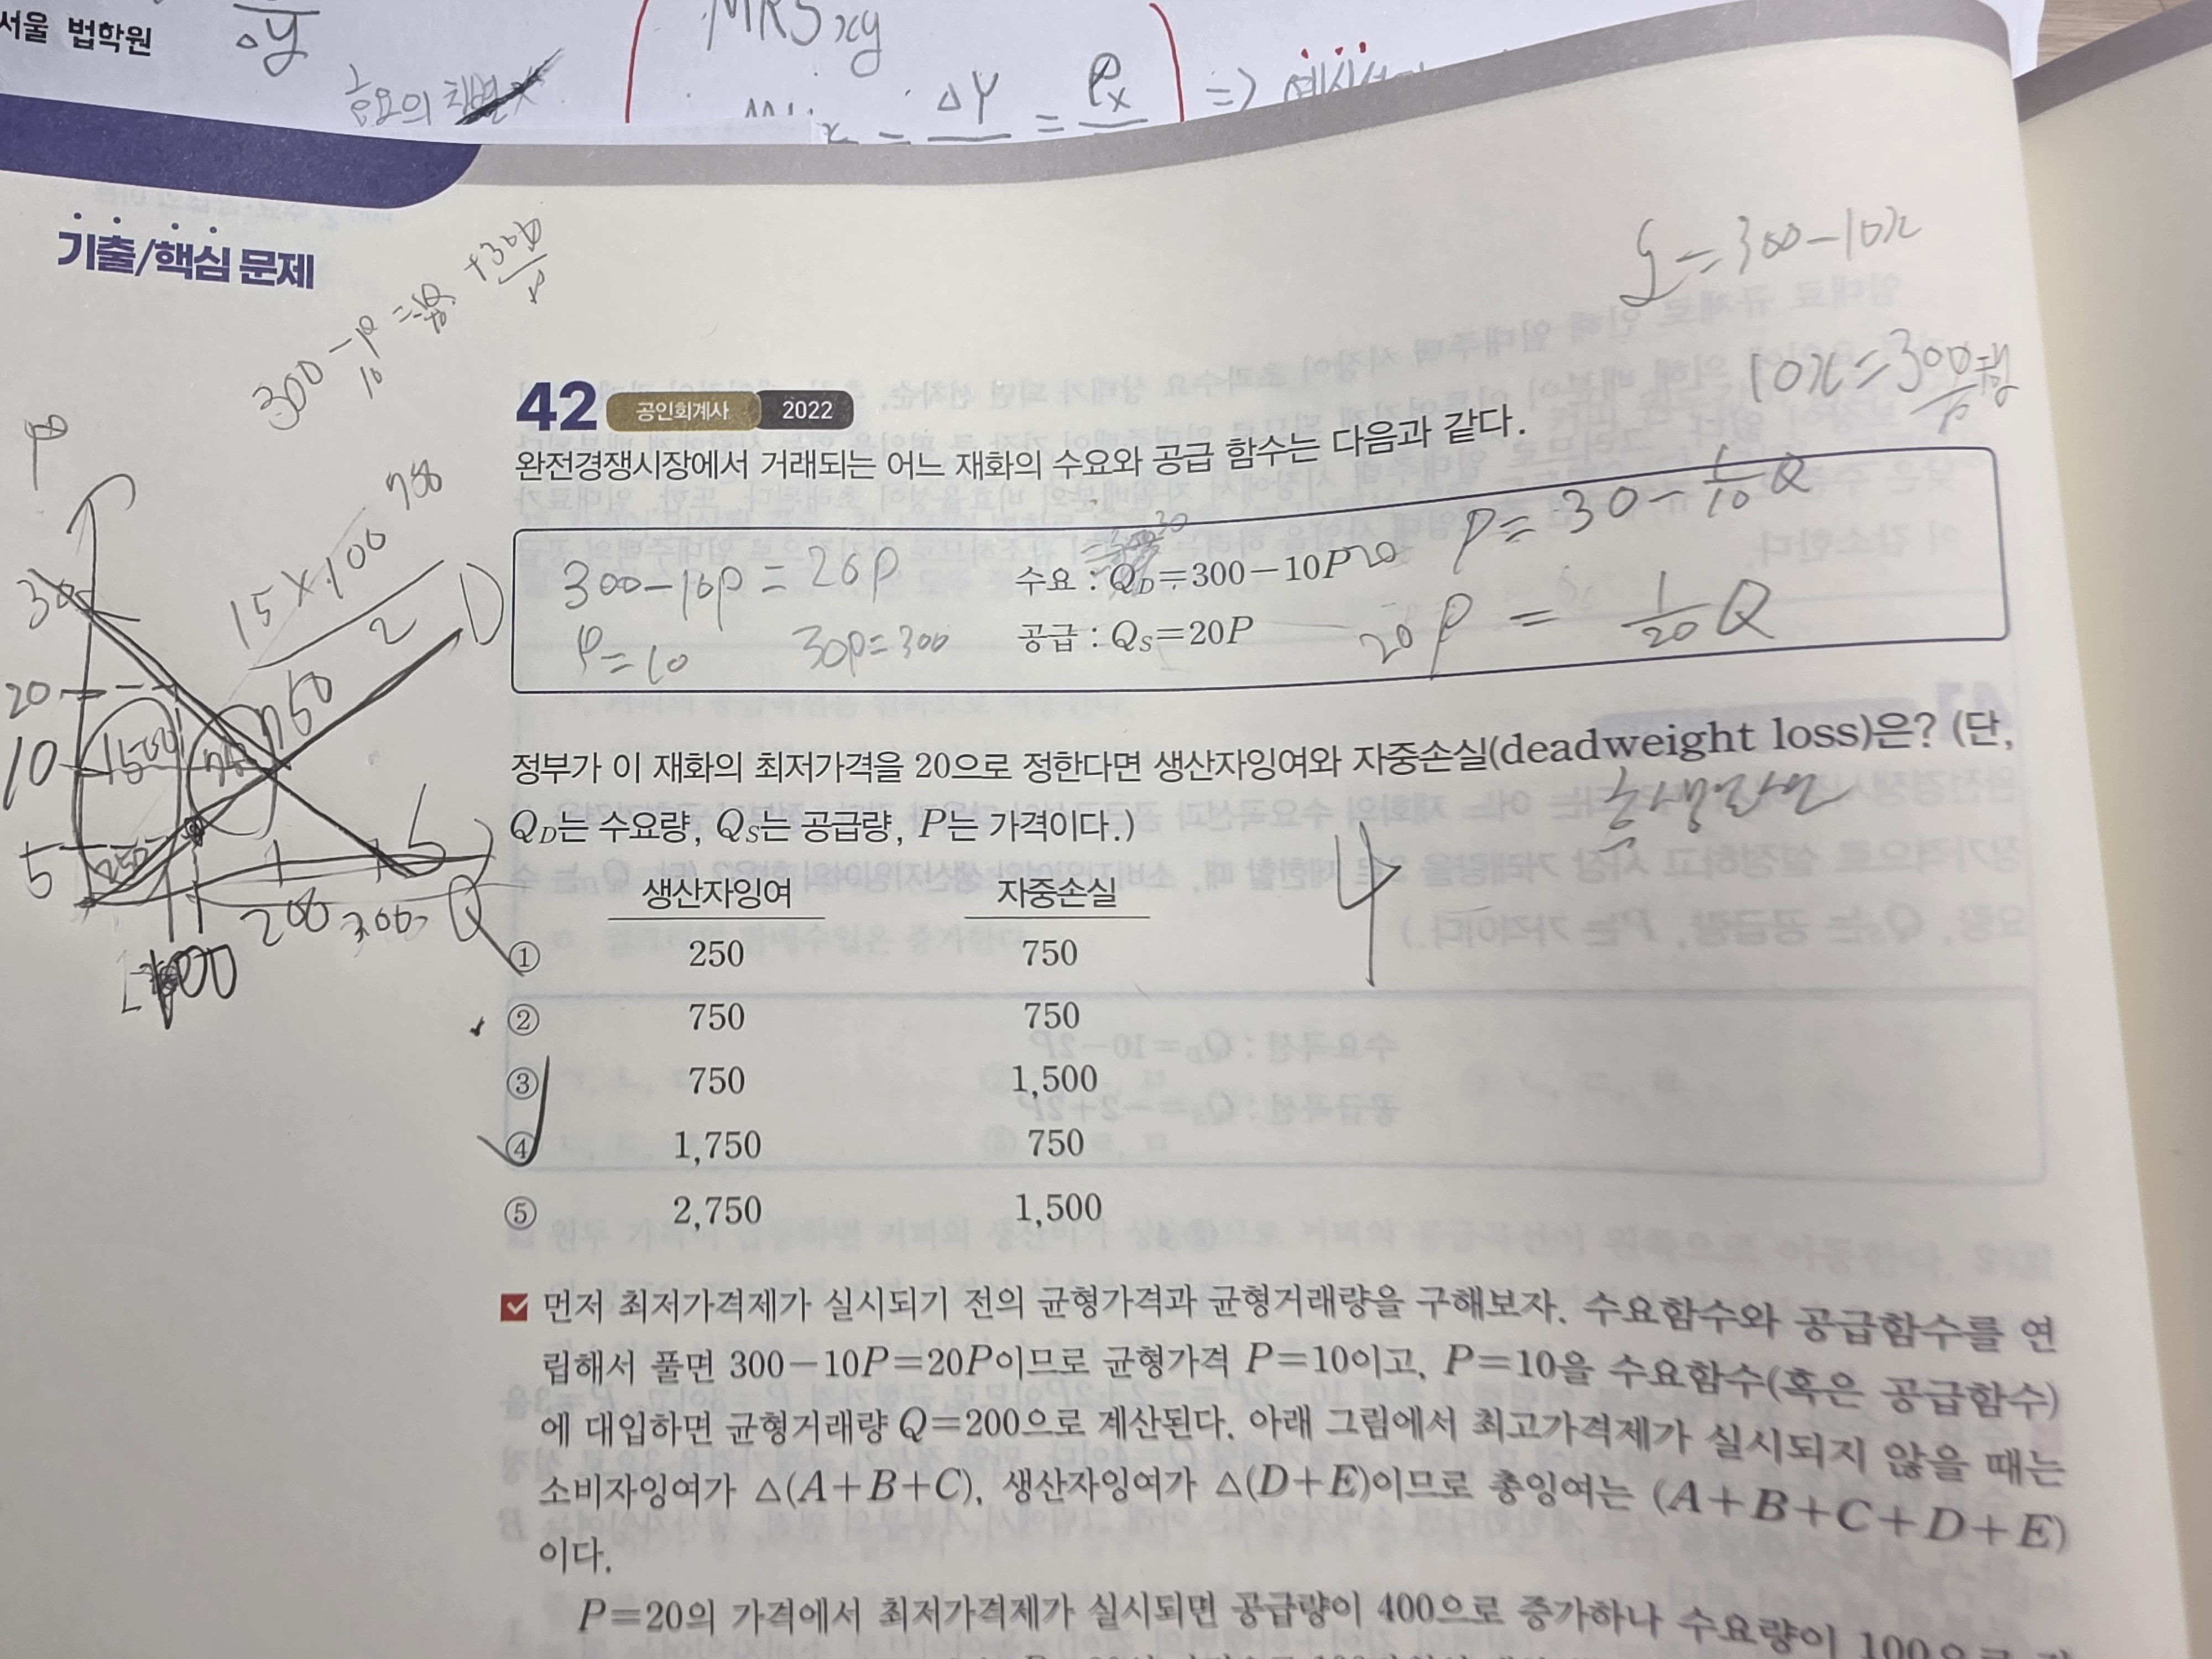 서울 법학원
△y
MRSxy
수요의
△Y = Px
=>
기출/핵심 문제
300-10x
10x=300
300-
42 공인회계사 2022
완전경쟁시장에서 거래되는 어느 재화의 수요와 공급 함수는 다음과 같다.
P
15×100
2
750
D
300-10P=20P
P=10
30P=300
수요 : QD=300-10P
P=30-1/10Q
공급 : QS=20P
P = 1/20 Q
30
20
10
5
1500
750
250
S
100
200
300
Q
정부가 이 재화의 최저가격을 20으로 정한다면 생산자잉여와 자중손실(deadweight loss)은? (단,
QD는 수요량, QS는 공급량, P는 가격이다.)
4
생산자잉여 자중손실
① 250 750
② 750 750
③ 750 1,500
④ 1,750 750
⑤ 2,750 1,500
먼저 최저가격제가 실시되기 전의 균형가격과 균형거래량을 구해보자. 수요함수와 공급함수를 연
립해서 풀면 300-10P=20P이므로 균형가격 P=10이고, P=10을 수요함수(혹은 공급함수)
에 대입하면 균형거래량 Q=200으로 계산된다. 아래 그림에서 최고가격제가 실시되지 않을 때는
소비자잉여가 △(A+B+C), 생산자잉여가 △(D+E)이므로 총잉여는 (A+B+C+D+E)
이다.
P=20의 가격에서 최저가격제가 실시되면 공급량이 400으로 증가하나 수요량이 100으로